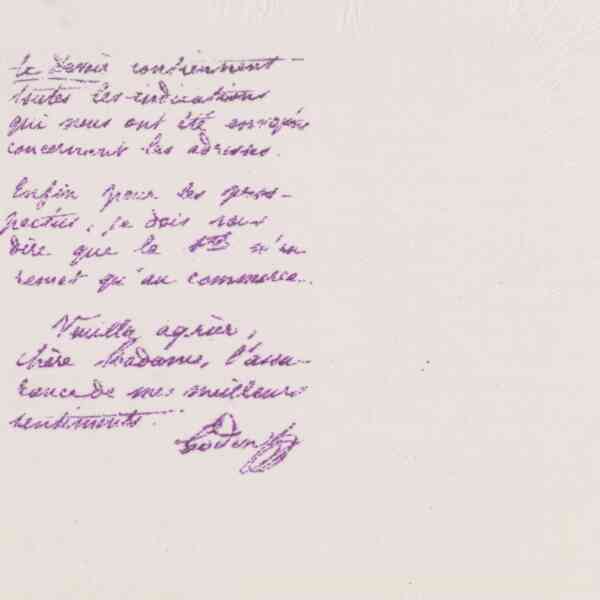 le Devoir contiennent
toutes les indications
qui nous ont été envoyées
concernant les adresses.
Enfin pour les pros-
pectus, je dois vous
dire que la Sté n'en
remet qu'au commerce.
Veuillez agréer,
chère Madame, l'assu-
rance de mes meilleurs
sentiments.